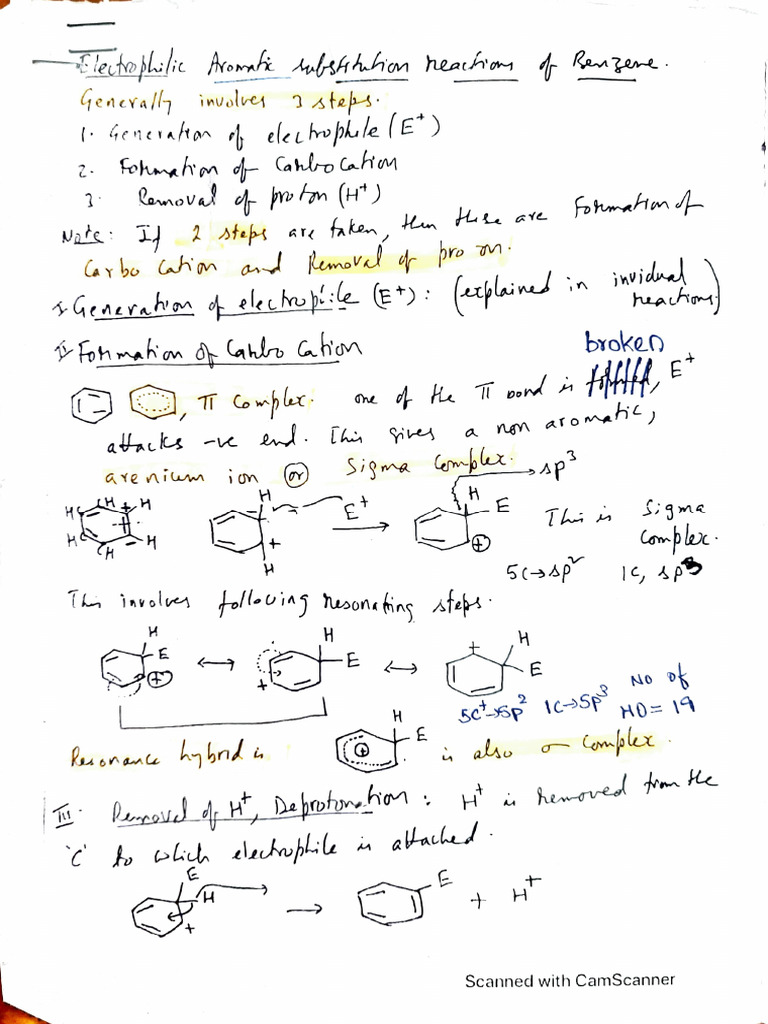 Electrophilic Aromatic substitution reactions of Benzene.
Generally involves 3 steps.
1. Generation of electrophile (E+)
2. Formation of Carbocation
3. Removal of proton (H+)
Note: If 2 steps are taken, then these are Formation of
Carbo cation and Removal of pro on.
I Generation of electrophile (E+): (explained in invidual reactions)
II Formation of Carbo Cation
broken
, π Complex. one of the π bond is , E+
attacks -ve end. This gives a non aromatic,
arenium ion or Sigma Complex.
sp3
H H H H H H
H H E+
H E
This is Sigma Complex.
5C→sp2 1C, sp3
This involves following resonating steps.
H E + ↔ H E + ↔ + H E
5C+→sp2 1C→sp3 No of HO = 19
Resonance hybrid is H E + is also σ Complex.
III. Removal of H+, Deprotonation: H+ is removed from the
'C' to which electrophile is attached.
E H + → E + H+
Scanned with CamScanner